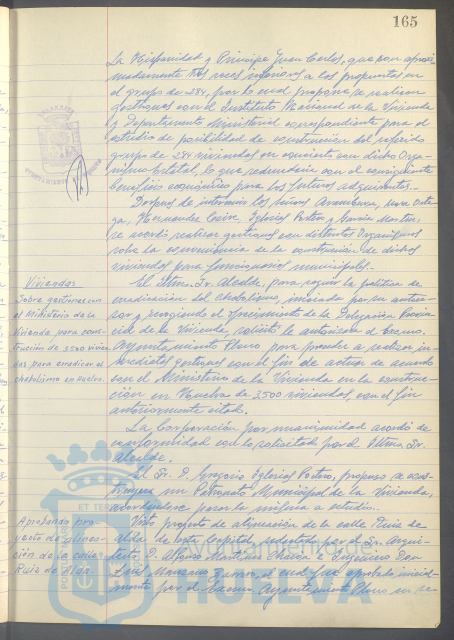 165
La Hispanidad y Principe Juan Carlos, que son aproxi-
madamente tres veces inferiores a los propuestos en
el grupo de 284, por lo cual propone se realicen
gestiones con el Instituto Nacional de la Vivienda
y Departamento Ministerial correspondiente para el
estudio de posibilidad de construcción del referido
grupo de 284 viviendas en concierto con dicho Orga-
nismo estatal, lo que redundaria con el consiguiente
beneficio económico para los futuros adquirentes.-
Despues de intervenir los señores
Hernandez Iglesias Potro y García Martin,
se acordó realizar gestiones con distintos Organismos
sobre la económica de la construcción de dichas
viviendas para funcionarios municipales.-
Viviendas
Sobre gestiones con
el Ministerio de la
Vivienda para cons-
trucción de 2500 vivien-
das para erradicar el
chabolismo en Huelva.
El Iltmo. Sr. Alcalde, para seguir la política de
erradicación del chabolismo, iniciada por su antece-
sor y recogiendo el ofrecimiento de la Delegación Provin-
cial de la Vivienda, solicita la autorización del Excmo.
Ayuntamiento Pleno para proceder a realizar in-
mediatas gestiones con el fin de actuar de acuerdo
con el Ministerio de la Vivienda en la construc-
ción en Huelva de 2.500 viviendas, con el fin
anteriormente citado.
La Corporación por unanimidad acordó de
conformidad con lo solicitado por el Iltmo. Sr.
Alcalde.
El Sr. D. Gregorio Iglesias Potro, propuso se cons-
tituyera un Patronato Municipal de la Vivienda,
acordandose pasar la misma a estudio.
Aprobando pro-
yecto de alinea-
ción de la calle
Ruiz de Alda.
Visto proyecto de alineación de la calle Ruiz de
Alda de esta Capital, redactado por el Sr. Arqui-
tecto D. Alfonso Martínez e Ingeniero Don
Luis el cual fue aprobado inicial-
mente por el Excmo. Ayuntamiento Pleno en se-
Ayuntamiento de
HUELVA